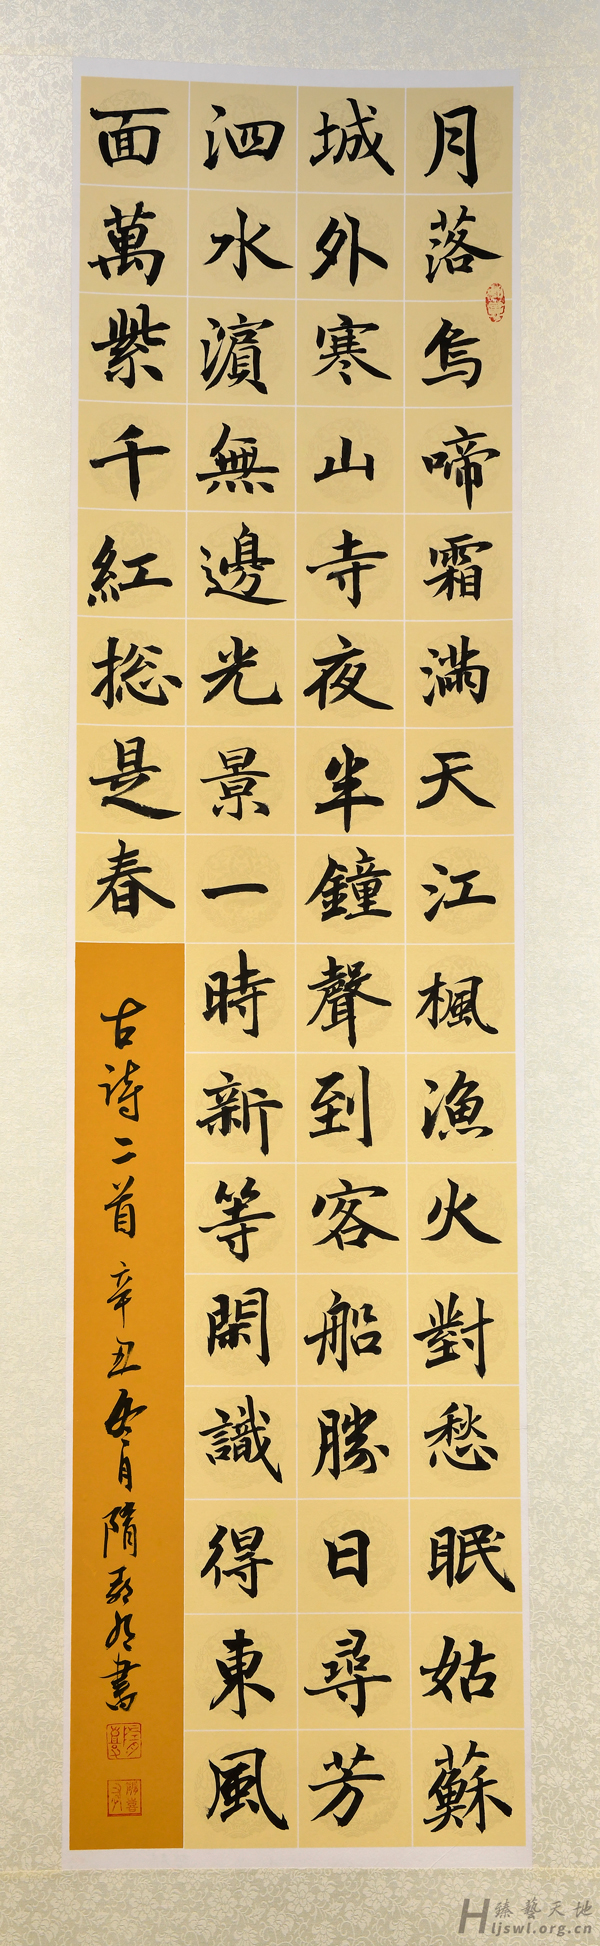 月落烏啼霜滿天江楓漁火對愁眠姑蘇
城外寒山寺夜半鐘聲到客船勝日尋芳
泗水濱無邊光景一時新等閑識得東風
面萬紫千紅捴是春
古詩二首辛丑冬月隋
書
臻藝天地
Hljswl.org.cn